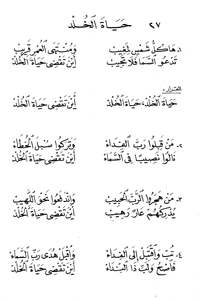 ٢٧ حَيَاةَ الْخُلْدِ
١ـ هَا كُلُّ شَمْسٍ تَغِيبْ وَمُنْتَهَى الْعُمْرِ قَرِيبْ
تَدْعُو السَّمَا فَلَا تُجِيبْ أَيْنَ تَقْضِي حَيَاةَ الْخُلْدْ
القرار:
حَيَاةَ الْخُلْدِ، حَيَاةَ الْخُلْدِ أَيْنَ تَقْضِي حَيَاةَ الْخُلْدْ
٢ـ مَنْ قَبِلُوا رَبَّ الْفِدَاءْ وَتَرَكُوا سُبْلَ الْخُطَاةْ
نَالُوا نَصِيبًا فِي السَّمَاءْ أَيْنَ تَقْضِي حَيَاةَ الْخُلْدْ
٣ـ مَنْ هَجَرُوا الرَّبَّ الْحَبِيبْ وَانْدَفَعُوا نَحْوَ اللَّهِيبْ
يُدْرِكُهُمْ عَارٌ رَهِيبْ أَيْنَ تَقْضِي حَيَاةَ الْخُلْدْ
٤ـ تُبْ وَاقْبَلْ إِلَى الْفِدَاءْ وَاقْبَلْ هُدَى رَبِّ السَّمَاءْ
وَلَبِّ ذَا النِّدَاءْ أَيْنَ تَقْضِي حَيَاةَ الْخُلْدْ